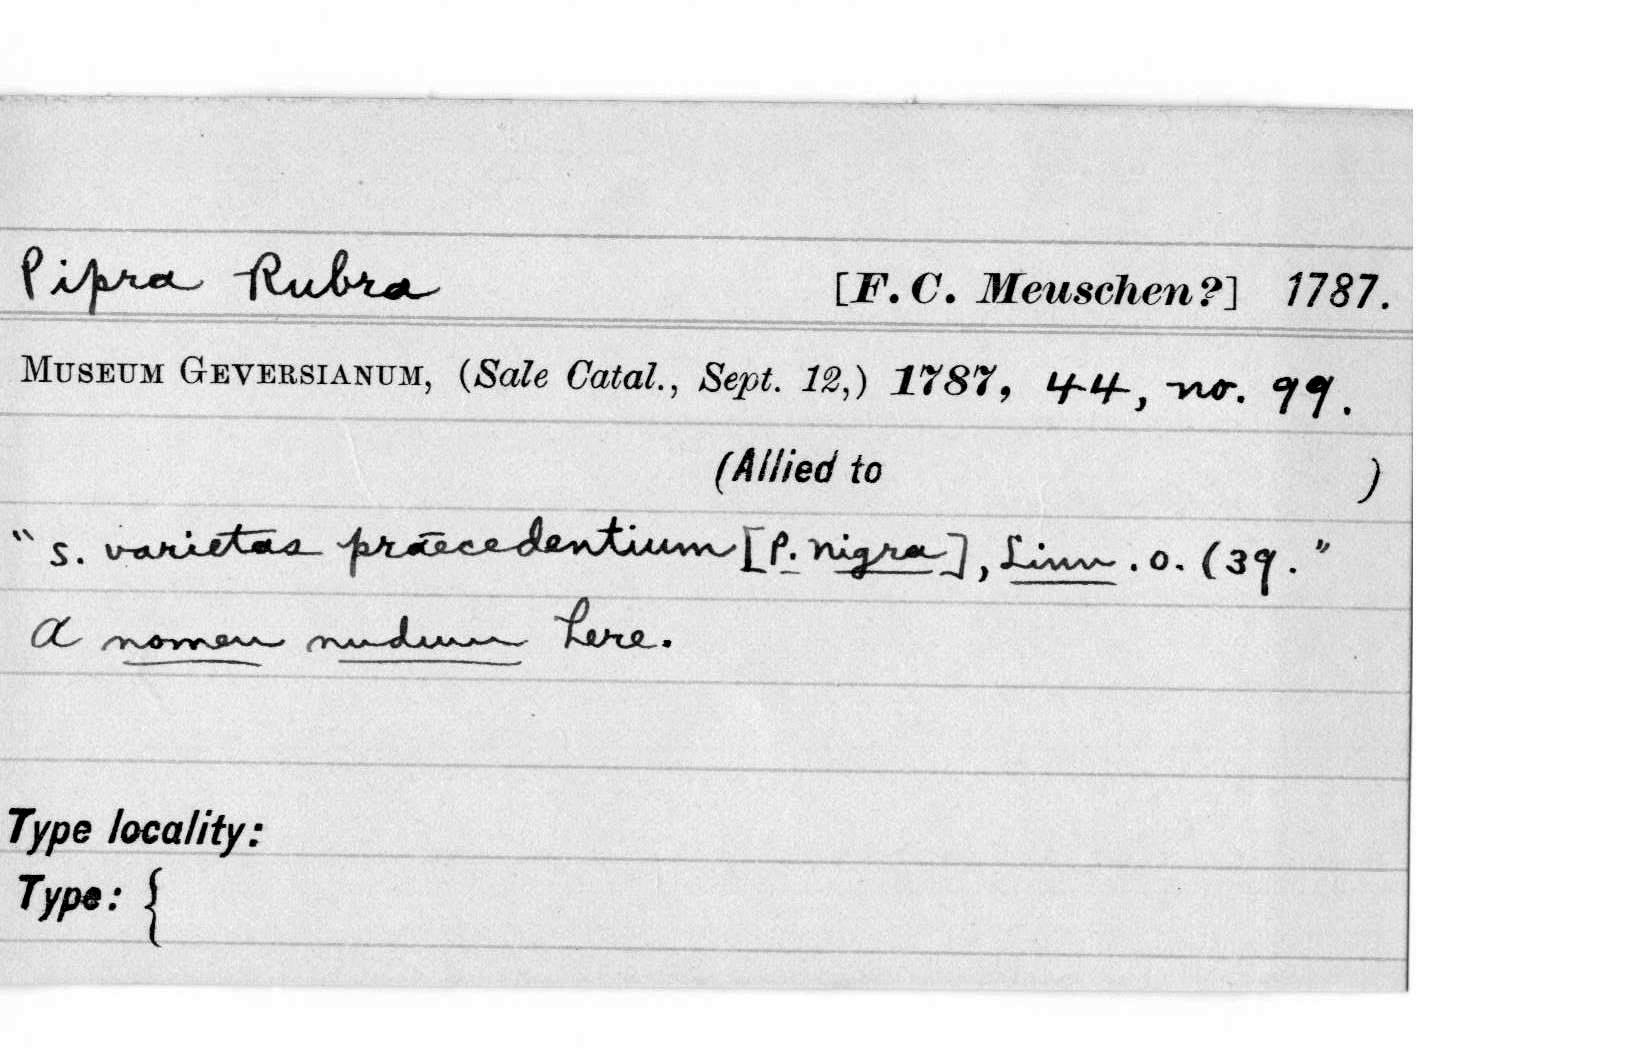 Pipra Rubra [F. C. Meuschen?] 1787.
MUSEUM GEVERSIANUM, (Sale Catal., Sept. 12,) 1787, 44, no. 99.
(Allied to )
"s. varietas praecedentium [P. nigra], Linn. o. (39."
A nomen nudum here.
Type locality:
Type: {